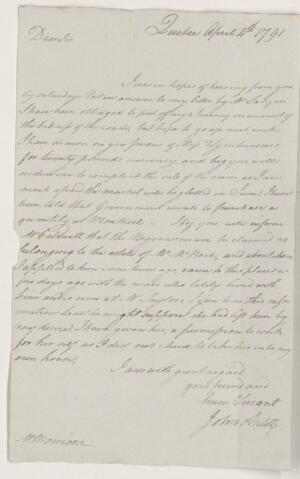 Quebec April 4th 1791
Dear Sir
I was in hopes of hearing from you
by saturdays Post in answer to my letter by Mr
I have been obliged to put off my Journey on account of
the badness of the roads, but hope to go up next week
I have drawn on you favour of
for twenty pounds currency, and beg you will
endeavour to compleat the sale of the rum as I am
much afraid the market will be glutted in June I have
been told that Government mean to purchase a
quantity at Montreal - Beg you will inform
Mr Caldwell that the Negro woman he claimed as
belonging to the estate of Mr McNeil, and about whom
I applied to him some time ago, came to this place a
few days ago with the man who lately lived with
him and is now at Mr Taylors, I give him this infor
mation least he might suppose she had left him by
my desire I have given her a permission to work
for her self as I did not chuse to take her into my
own house.
I am with great regard
your friend and
hum Servant
John
Mr Morrison